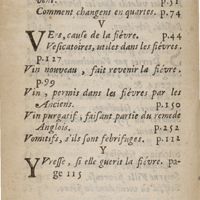 p.51
Comment changent en quartes. p.74
V
VErs, cause de la fiévre. p.44
Vesicatoires, utiles dans les fiévres.
p.127
Vin nouveau, fait revenir la fiévre.
p.99
Vin, permis dans les fiévres par les
Anciens. p.150
Vin purgatif, faisant partie du remede
Anglois. p.252
Vomitifs, s'ils sont febrifuges. p.112
Y
YVresse, si elle guerit la fiévre. pa-
ge 115